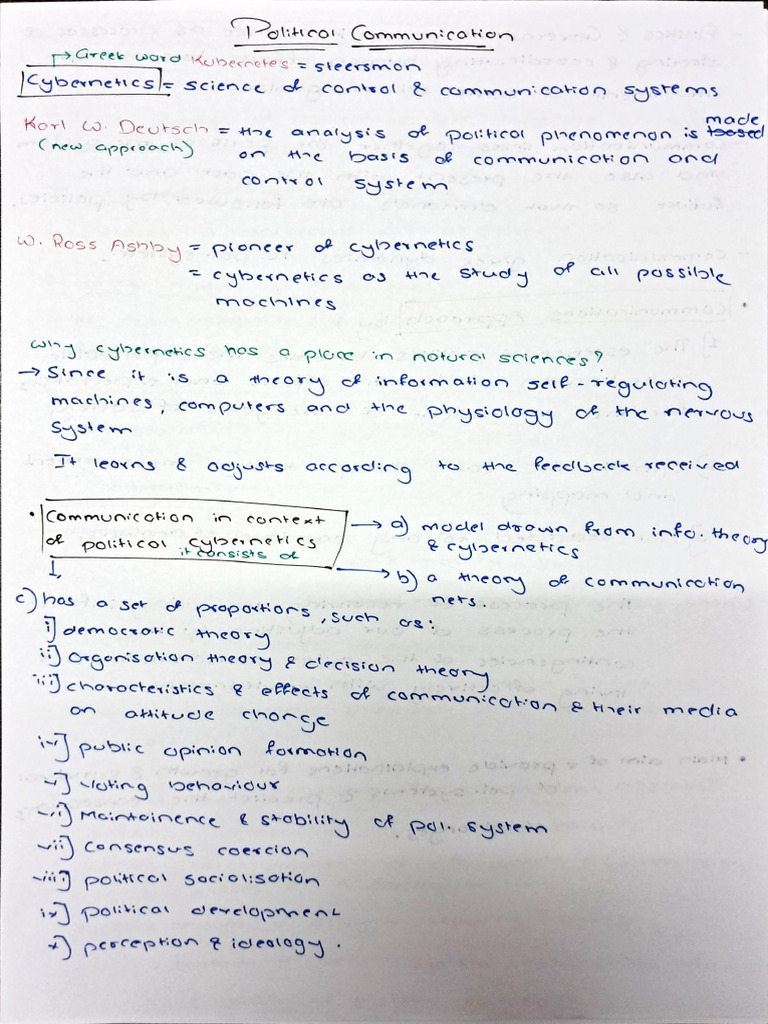 Political Communication
→ Greek word Kubernetes = steersman
Cybernetics = science of control & communication systems
Karl W. Deutsch = the analysis of political phenomenon is made
(new approach) on the basis of communication and
control system
W. Ross Ashby = pioneer of cybernetics
= cybernetics as the study of all possible
machines
Why cybernetics has a place in natural sciences?
→ Since it is a theory of information self-regulating
machines, computers and the physiology of the nervous
system
It learns & adjusts according to the feedback received
• Communication in context → a) model drawn from info. theory
of political cybernetics & cybernetics
it consists of
→ b) a theory of communication
nets.
c) has a set of proportions, such as:
i] democratic theory
ii] organisation theory & decision theory
iii] characteristics & effects of communication & their media
on attitude change
iv] public opinion formation
v] voting behaviour
vi] Maintainence & stability of pol. system
vii] consensus coercion
viii] political socialisation
ix] political development
x] perception & ideology.